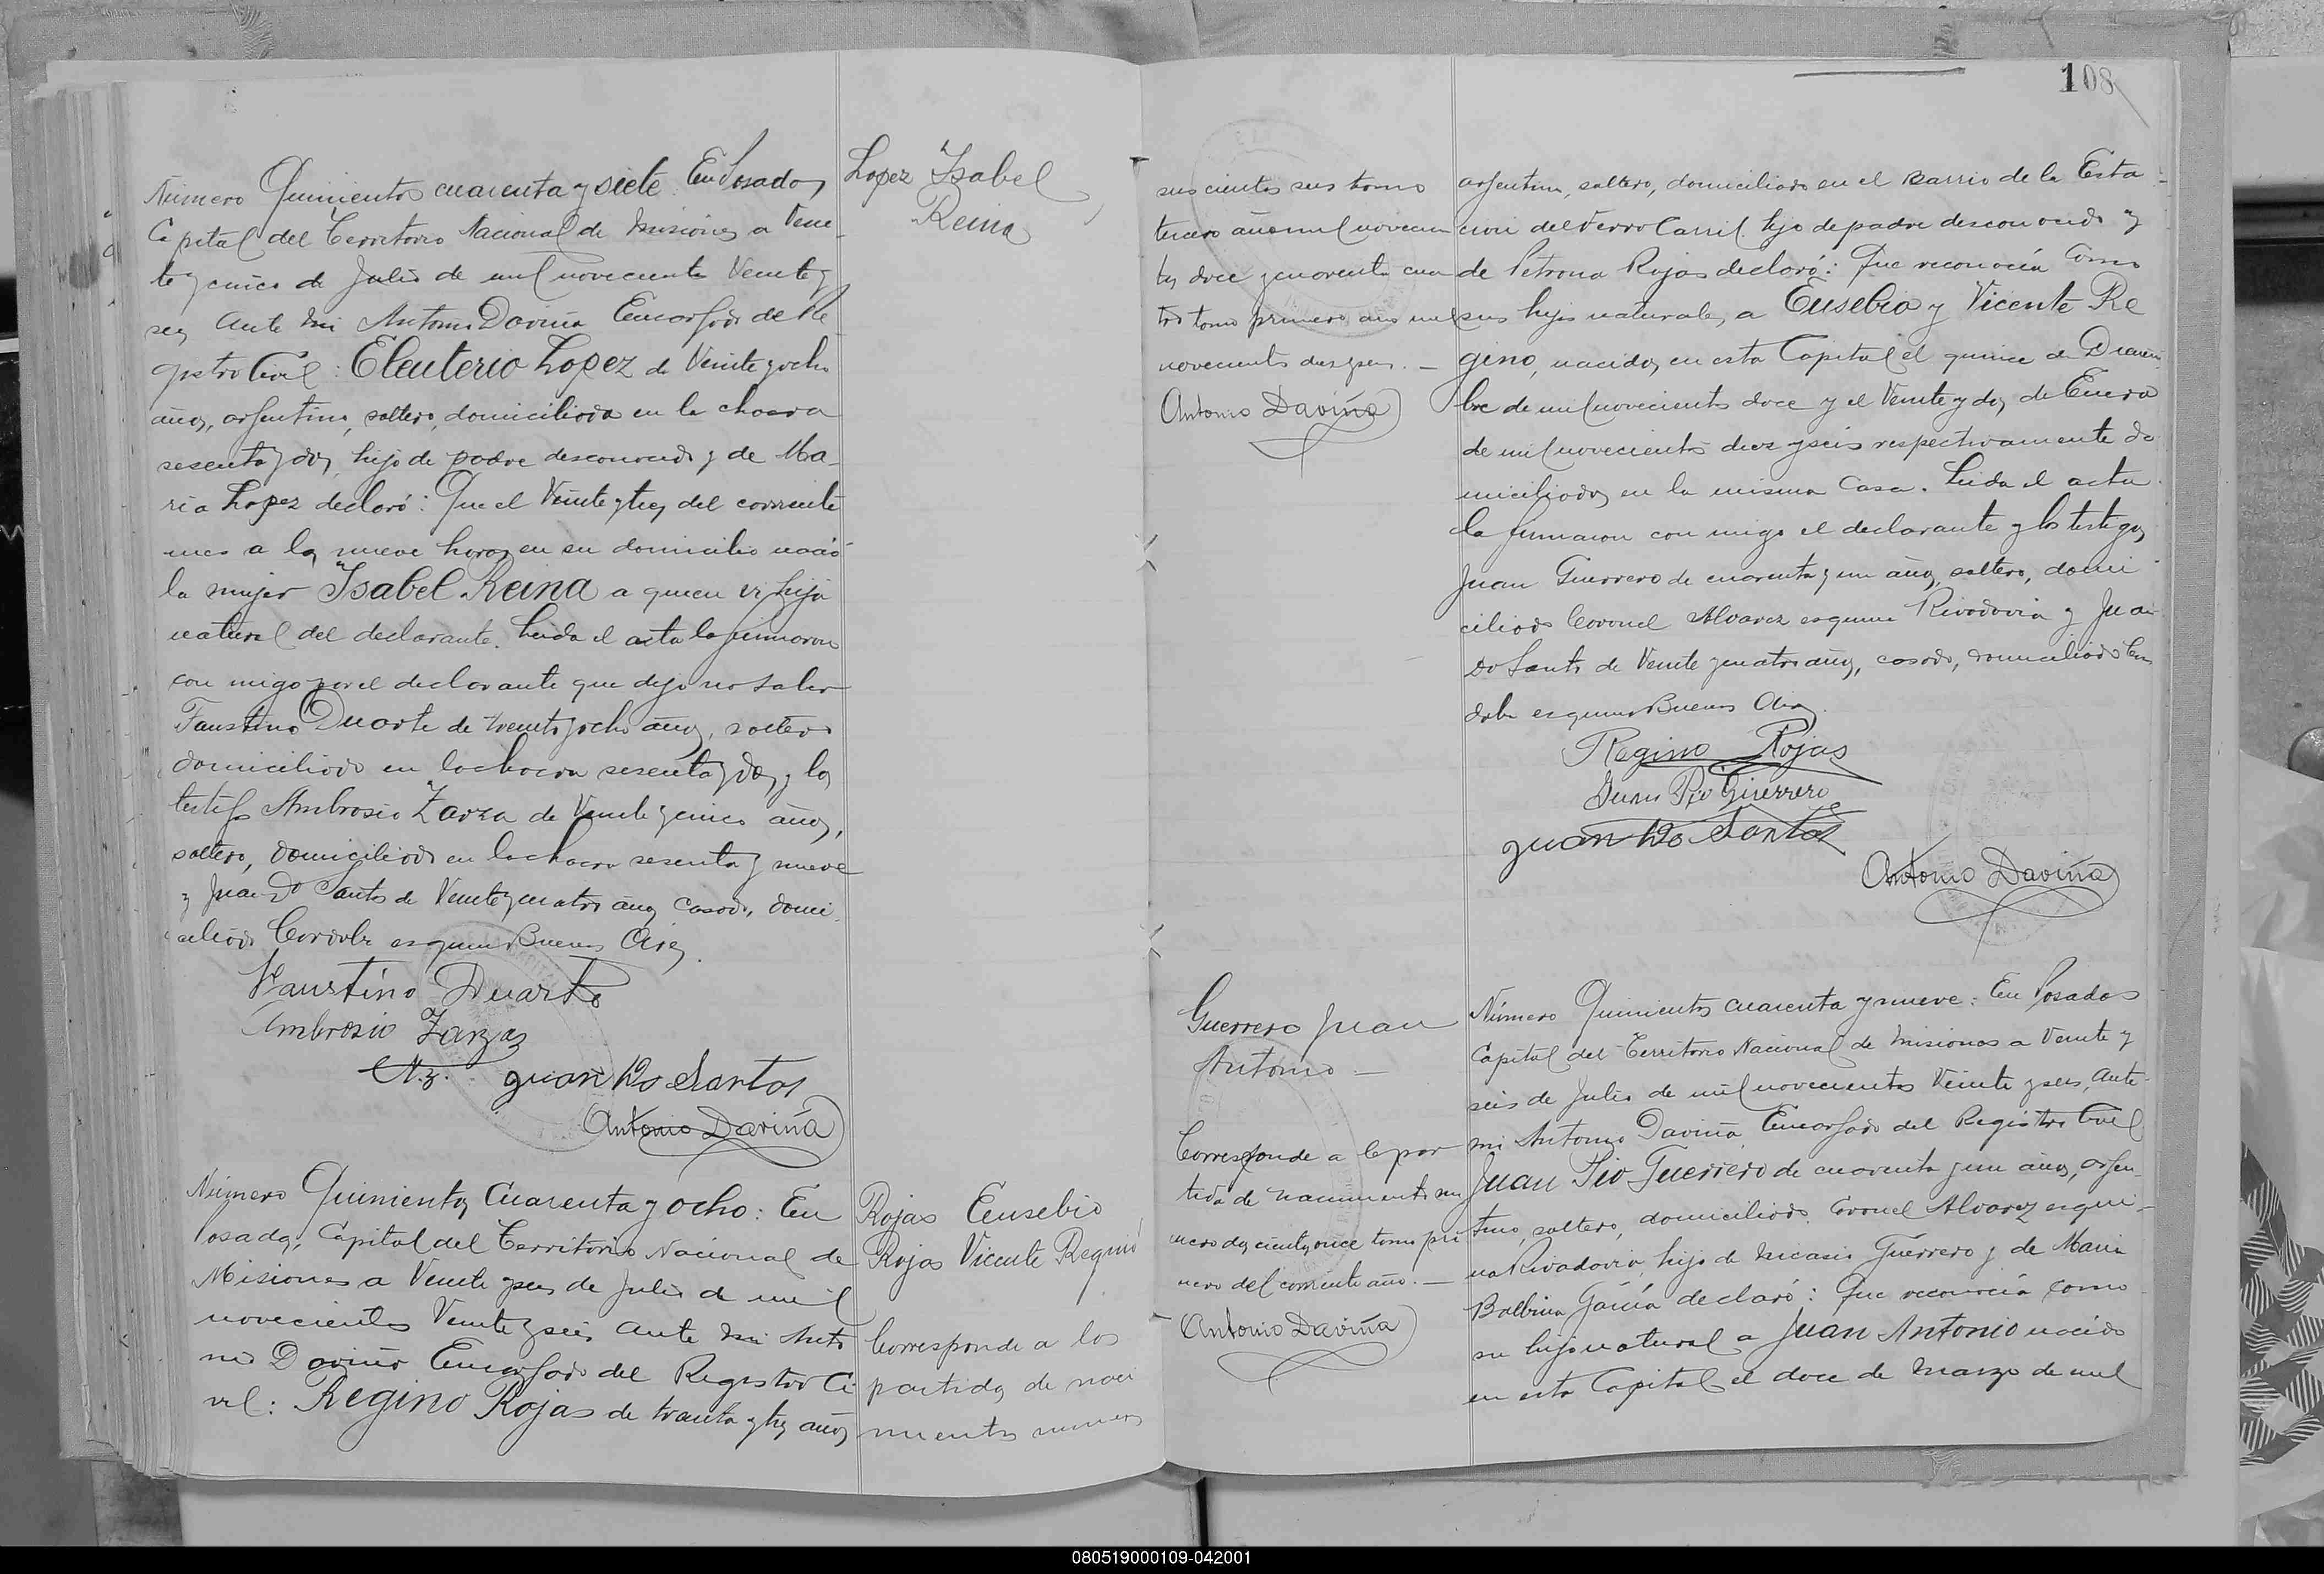 Número Quinientos cuarenta y siete. En Posadas
Capital del Territorio Nacional de Misiones a Vein-
te y cinco de Julio de mil novecientos Veinte y
seis Ante mi Antonio Daviña Encargado del Re-
gistro Civil: Eleuterio Lopez de Veinte y ocho
años, argentino, soltero, domiciliado en la chacra
sesenta y dos, hijo de padre desconocido y de Ma-
ria Lopez declaró: Que el Veinte y tres del corriente
mes a las nueve horas en su domicilio nació
la mujer Isabel Reina a quien vi hija
natural del declarante. Leida el acta la firmaron
con migo por el declarante que dijo no saber
Faustino Duarte de treinta y ocho años, soltero
domiciliado en la chacra sesenta y dos, y los
testigos Ambrosio Zarza de Veinte y cinco años,
soltero, domiciliado en la chacra sesenta y nueve
y Juan Do Santos de Veinte y cuatro años casado, domi-
ciliado Cordoba esquina Buenos Aires.
Faustino Duarte
Ambrosio Zarza
A.z. Juan Do Santos
Antonio Daviña
Lopez Isabel
Reina
Número Quinientos Cuarenta y ocho: En
Posadas, Capital del Territorio Nacional de
Misiones a Veinte y seis de Julio de mil
novecientos Veinte y seis ante mi Anto
nio Daviña Encargado del Registro Ci
vil: Regino Rojas de treinta y tres años
Rojas Eusebio
Rojas Vicente Regino
Corresponde a las
partidas de naci
miento numeros
108
seiscientos seis tomo
tercero año mil novecien
tos doce y noventa cua
tro tomo primero año mil
novecientos diez y seis. —
Antonio Daviña
argentino, soltero, domiciliado en el Barrio de la Esta-
cion del Ferro Carril. hijo de padre desconocido y
de Petrona Rojas declaró: Que reconocia como
sus hijos naturales a Eusebio y Vicente Re
gino, nacidos en esta Capital el quince de Diciem-
bre de mil novecientos doce y el Veinte y dos de Enero
de mil novecientos diez y seis respectivamente do
miciliados en la misma Casa. Leida el acta
la firmaron con migo el declarante y los testigos
Juan Guerrero de cuarenta y un años, soltero, domi-
ciliado Coronel Alvarez esquina Rivadavia y Juan
Do Santos de Veinte y cuatro años, casado, domiciliado Cor
doba esquina Buenos Aires.
Regino Rojas
Juan Pio Guerrero
Juan Do Santos
Antonio Daviña
Guerrero Juan
Antonio —
Corresponde a la par
tida de nacimiento nu
mero doscientos once tomo pri
mero del corriente año. —
Antonio Daviña
Número Quinientos cuarenta y nueve: En Posadas
Capital del Territorio Nacional de Misiones a Veinte y
seis de Julio de mil novecientos Veinte y seis, Ante
mi Antonio Daviña Encargado del Registro Civil
Juan Pio Guerrero de cuarenta y un años, argen-
tino, soltero, domiciliado Coronel Alvarez esqui-
na Rivadavia, hijo de Nicasio Guerrero y de Maria
Balbina Garcia declaró: Que reconocia como
su hijo natural a Juan Antonio nacido
en esta Capital el doce de Marzo de mil
080519000109-042001